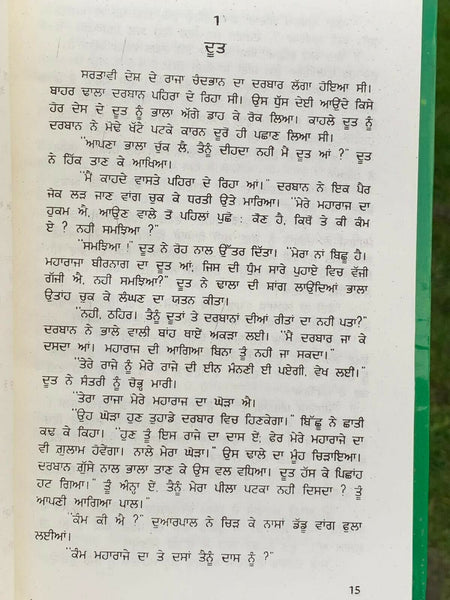 1
ਦੂਤ
ਸਰਤਾਵੀ ਦੇਸ਼ ਦੇ ਰਾਜਾ ਚੰਦਭਾਨ ਦਾ ਦਰਬਾਰ ਲੱਗਾ ਹੋਇਆ ਸੀ।
ਬਾਹਰ ਢਾਲਾ ਦਰਬਾਨ ਪਹਿਰਾ ਦੇ ਰਿਹਾ ਸੀ। ਉਸ ਧੁੱਸ ਦੇਈ ਆਉਂਦੇ ਕਿਸੇ
ਹੋਰ ਦੇਸ ਦੇ ਦੂਤ ਨੂੰ ਭਾਲਾ ਅੱਗੇ ਡਾਹ ਕੇ ਰੋਕ ਲਿਆ। ਕਾਹਲੇ ਦੂਤ ਨੂੰ
ਦਰਬਾਨ ਨੇ ਮੋਢੇ ਖੱਟੇ ਪਟਕੇ ਕਾਰਨ ਦੂਰੋਂ ਹੀ ਪਛਾਣ ਲਿਆ ਸੀ।
"ਆਪਣਾ ਭਾਲਾ ਚੁਕ ਲੈ, ਤੈਨੂੰ ਦੀਹਦਾ ਨਹੀਂ ਮੈਂ ਦੂਤ ਆਂ ?" ਦੂਤ
ਨੇ ਹਿੱਕ ਤਾਣ ਕੇ ਆਖਿਆ।
"ਮੈਂ ਕਾਹਦੇ ਵਾਸਤੇ ਪਹਿਰਾ ਦੇ ਰਿਹਾ ਆਂ।" ਦਰਬਾਨ ਨੇ ਇਕ ਪੈਰ
ਜੋਕ ਲੜ ਜਾਣ ਵਾਂਗ ਚੁਕ ਕੇ ਧਰਤੀ ਉਤੇ ਮਾਰਿਆ। "ਮੇਰੇ ਮਹਾਰਾਜ ਦਾ
ਹੁਕਮ ਐ, ਆਉਣ ਵਾਲੇ ਤੋਂ ਪਹਿਲਾਂ ਪੁਛੋ : ਕੌਣ ਹੈ, ਕਿਥੋਂ ਤੇ ਕੀ ਕੰਮ
ਏ ? ਨਹੀਂ ਸਮਝਿਆ ?"
"ਸਮਝਿਆ !" ਦੂਤ ਨੇ ਰੋਹ ਨਾਲ ਉੱਤਰ ਦਿੱਤਾ। "ਮੇਰਾ ਨਾਂ ਬਿਛੂ ਹੈ।
ਮਹਾਰਾਜਾ ਬੀਰਨਾਗ ਦਾ ਦੂਤ ਆਂ; ਜਿਸ ਦੀ ਧੁੰਮ ਸਾਰੇ ਪੁਹਾਏ ਵਿਚ ਵੱਜੀ
ਗੱਜੀ ਐ, ਨਹੀਂ ਸਮਝਿਆ?" ਦੂਤ ਨੇ ਢਾਲਾ ਦੀ ਸਾਂਗ ਲਾਉਂਦਿਆਂ ਭਾਲਾ
ਉਤਾਂਹ ਚੁਕ ਕੇ ਲੰਘਣ ਦਾ ਯਤਨ ਕੀਤਾ।
"ਨਹੀਂ, ਠਹਿਰ। ਤੈਨੂੰ ਦੂਤਾਂ ਤੇ ਦਰਬਾਨਾਂ ਦੀਆਂ ਰੀਤਾਂ ਦਾ ਨਹੀਂ ਪਤਾ?"
ਦਰਬਾਨ ਨੇ ਭਾਲੇ ਵਾਲੀ ਬਾਂਹ ਥਾਏਂ ਅਕੜਾ ਲਈ। "ਮੈਂ ਦਰਬਾਰ ਜਾ ਕੇ
ਦਸਦਾ ਆਂ। ਮਹਾਰਾਜ ਦੀ ਆਗਿਆ ਬਿਨਾ ਤੂੰ ਨਹੀਂ ਜਾ ਸਕਦਾ।"
"ਤੇਰੇ ਰਾਜੇ ਨੂੰ ਮੇਰੇ ਰਾਜੇ ਦੀ ਈਨ ਮੰਨਣੀ ਈ ਪਏਗੀ, ਵੇਖ ਲਈਂ।"
ਦੂਤ ਨੇ ਸੰਤਰੀ ਨੂੰ ਚੋਭ੍ਹ ਮਾਰੀ।
"ਤੇਰਾ ਰਾਜਾ ਮੇਰੇ ਮਹਾਰਾਜ ਦਾ ਘੋੜਾ ਐ।
"ਉਹ ਘੋੜਾ ਹੁਣ ਤੁਹਾਡੇ ਦਰਬਾਰ ਵਿਚ ਹਿਣਕੇਗਾ।" ਬਿੱਛੂ ਨੇ ਛਾਤੀ
ਕਢ ਕੇ ਕਿਹਾ। "ਹੁਣ ਤੂੰ ਇਸ ਰਾਜੇ ਦਾ ਦਾਸ ਏਂ; ਫੇਰ ਮੇਰੇ ਮਹਾਰਾਜੇ ਦਾ
ਵੀ ਗੁਲਾਮ ਹੋਵੇਂਗਾ। ਨਾਲੇ ਮੇਰਾ ਘੋੜਾ।" ਉਸ ਢਾਲੇ ਦਾ ਮੂੰਹ ਚਿੜਾਇਆ।
ਦਰਬਾਨ ਗੁੱਸੇ ਨਾਲ ਭਾਲਾ ਤਾਣ ਕੇ ਉਸ ਵਲ ਵਧਿਆ। ਦੂਤ ਹੱਸ ਕੇ ਪਿਛਾਂਹ
ਹਟ ਗਿਆ।" ਤੂੰ ਅੰਨ੍ਹਾ ਏਂ, ਤੈਨੂੰ ਮੇਰਾ ਪੀਲਾ ਪਟਕਾ ਨਹੀਂ ਦਿਸਦਾ ? ਤੂੰ
ਆਪਣੀ ਆਗਿਆ ਪਾਲ।"
"ਕੰਮ ਕੀ ਐ ?" ਦੁਆਰਪਾਲ ਨੇ ਚਿੜ ਕੇ ਨਾਸਾਂ ਡੱਡੂ ਵਾਂਗ ਫੁਲਾ
ਲਈਆਂ।
"ਕੰਮ ਮਹਾਰਾਜੇ ਦਾ ਤੇ ਦਸਾਂ ਤੈਨੂੰ ਦਾਸ ਨੂੰ ?"
15